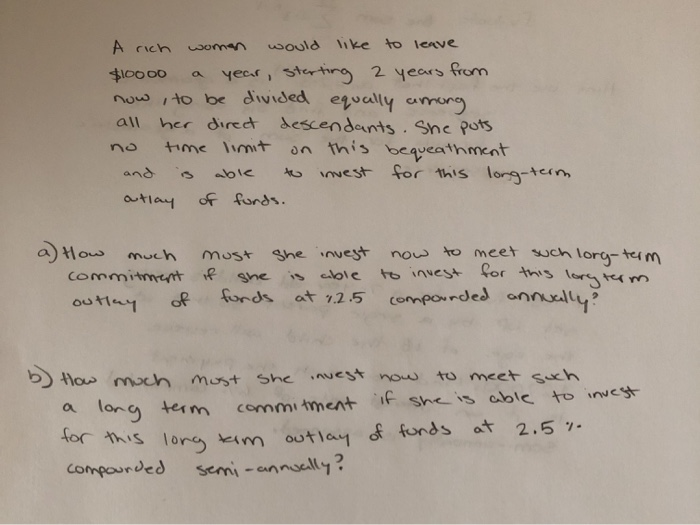 A rich woman would like to leave
$10000 a year, starting 2 years from
now, to be divided equally among
all her direct descendants. She puts
no time limit on this bequeathment
and is able to invest for this long-term
outlay of funds.
a) How much must she invest now to meet such long-term
commitment if she is able to invest for this long term
outlay of funds at %2.5 compounded annually?
b) How much must she invest now to meet such
a long term commitment if she is able to invest
for this long term outlay of funds at 2.5 %
compounded semi-annually?